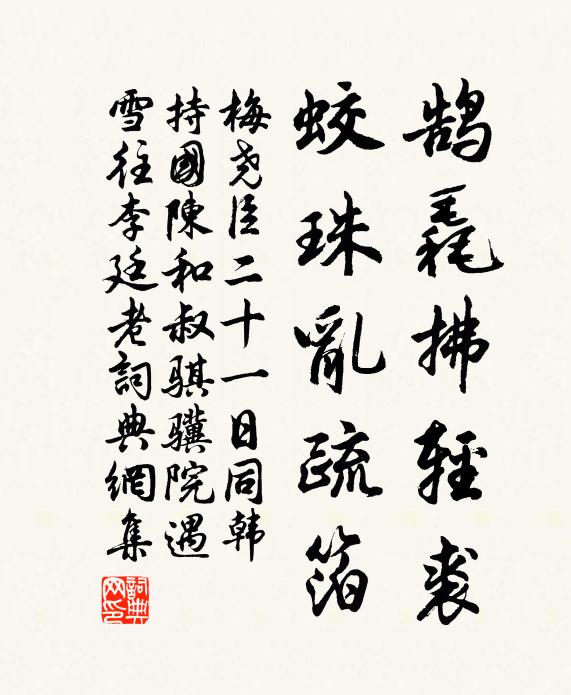 鹄毳拂輕裘
蛟珠亂疏箔
梅尧臣二十一日同韩
持國陳和叔骐骥院遇
雪往李廷老詞典網集
詞典网印